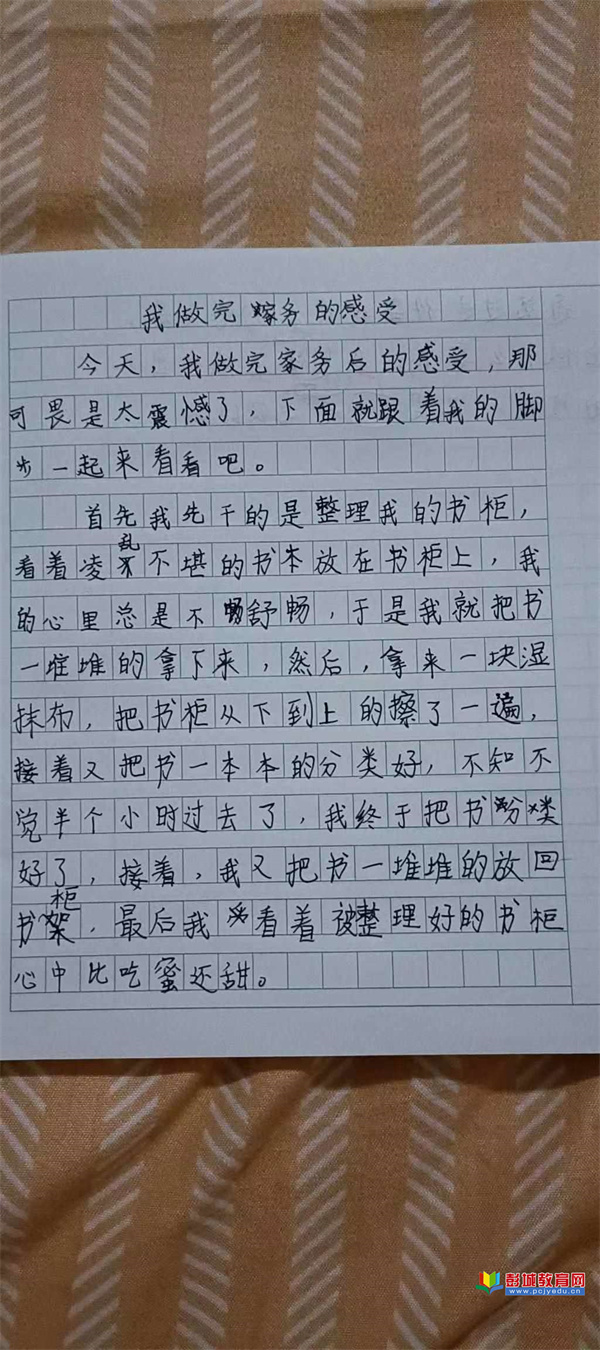 我做完家务的感受
今天，我做完家务后的感受，那
可畏是太震憾了，下面就跟着我的脚
步一起来看看吧。
首先我先干的是整理我的书柜，
看着凌乱不堪的书本放在书柜上，我
的心里总是不舒畅，于是我就把书
一堆堆的拿下来，然后，拿来一块湿
抹布，把书柜从下到上的擦了一遍，
接着又把书一本本的分类好，不知不
觉半个小时过去了，我终于把书分类
好了，接着，我又把书一堆堆的放回
书柜，最后我看着被整理好的书柜
心中比吃蜜还甜。
彭城教育网
www.pcjyedu.cn